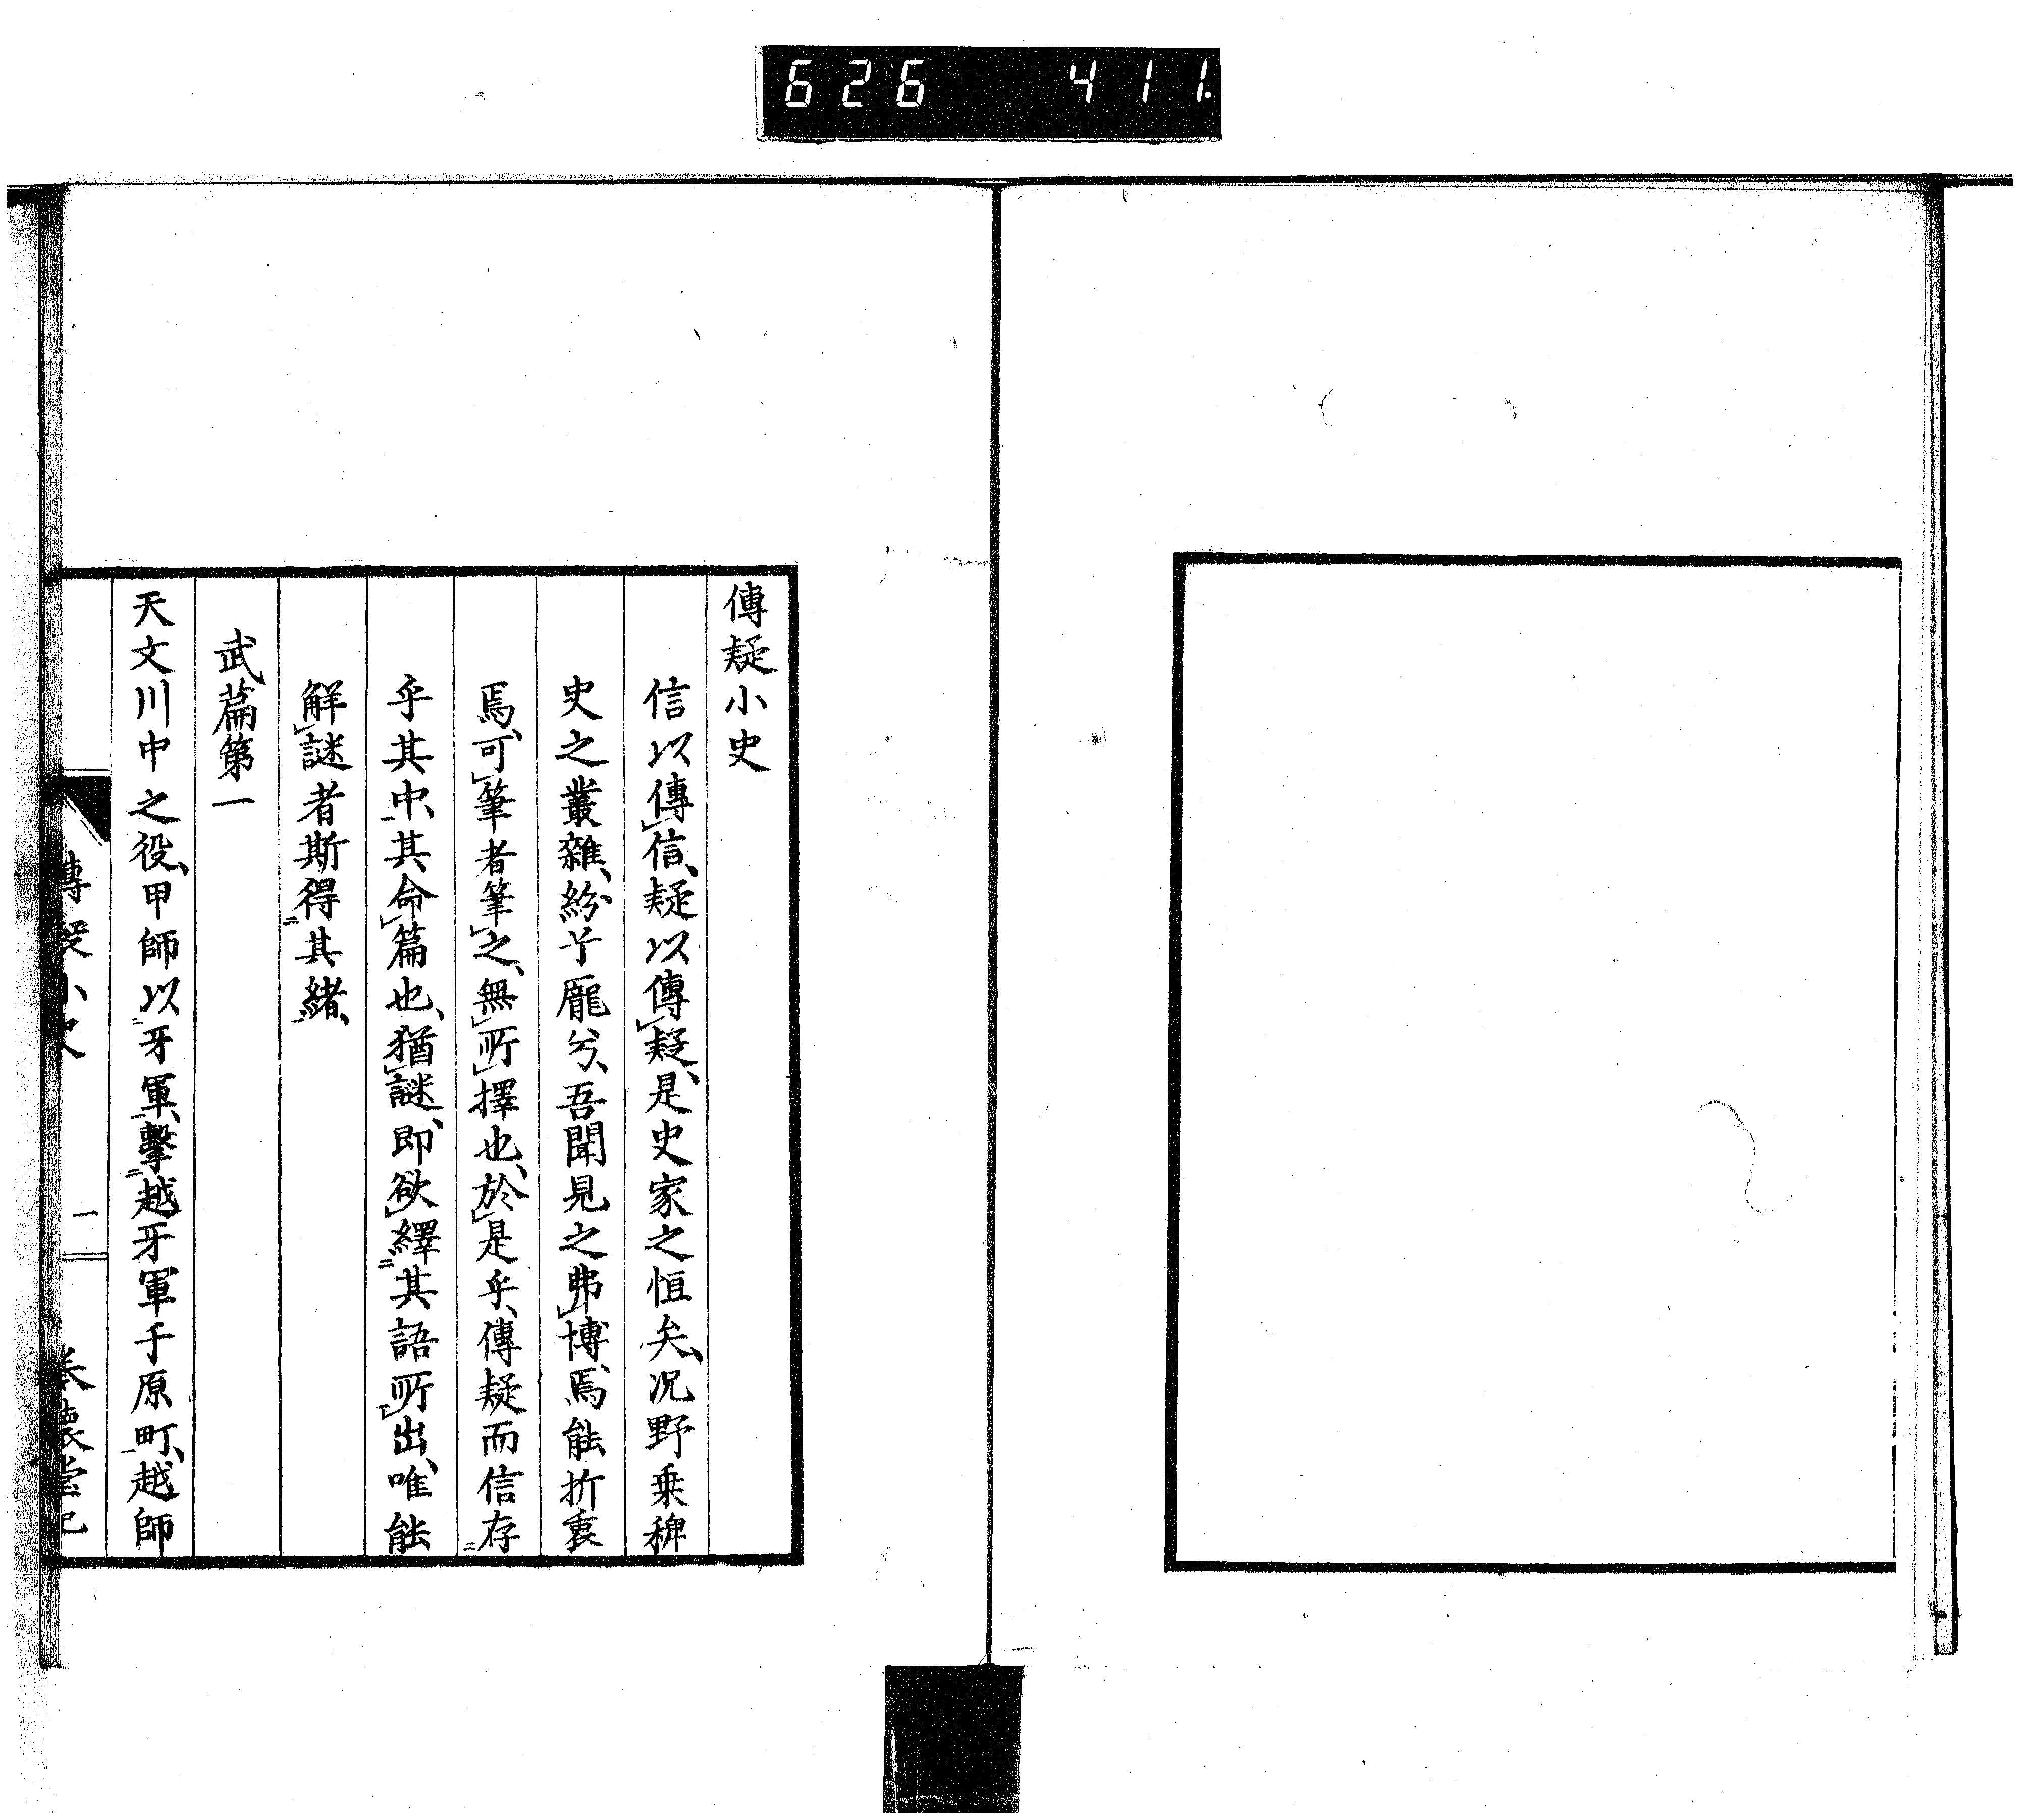 626 411.
傳疑小史
信以傳信、疑以傳疑、是史家之恒矣、況野乗稗
史之叢雜、紛乎龐兮、吾聞見之弗博、焉能折衷
焉、可筆者筆之、無所擇也、於是乎、傳疑而信存
乎其中、其命篇也、猶謎、即欲繹其語所出、唯能
解謎者斯得其緒、
武篇第一
天文川中之役、甲師以牙軍、擊越牙軍于原町、越師
傳疑小史
一